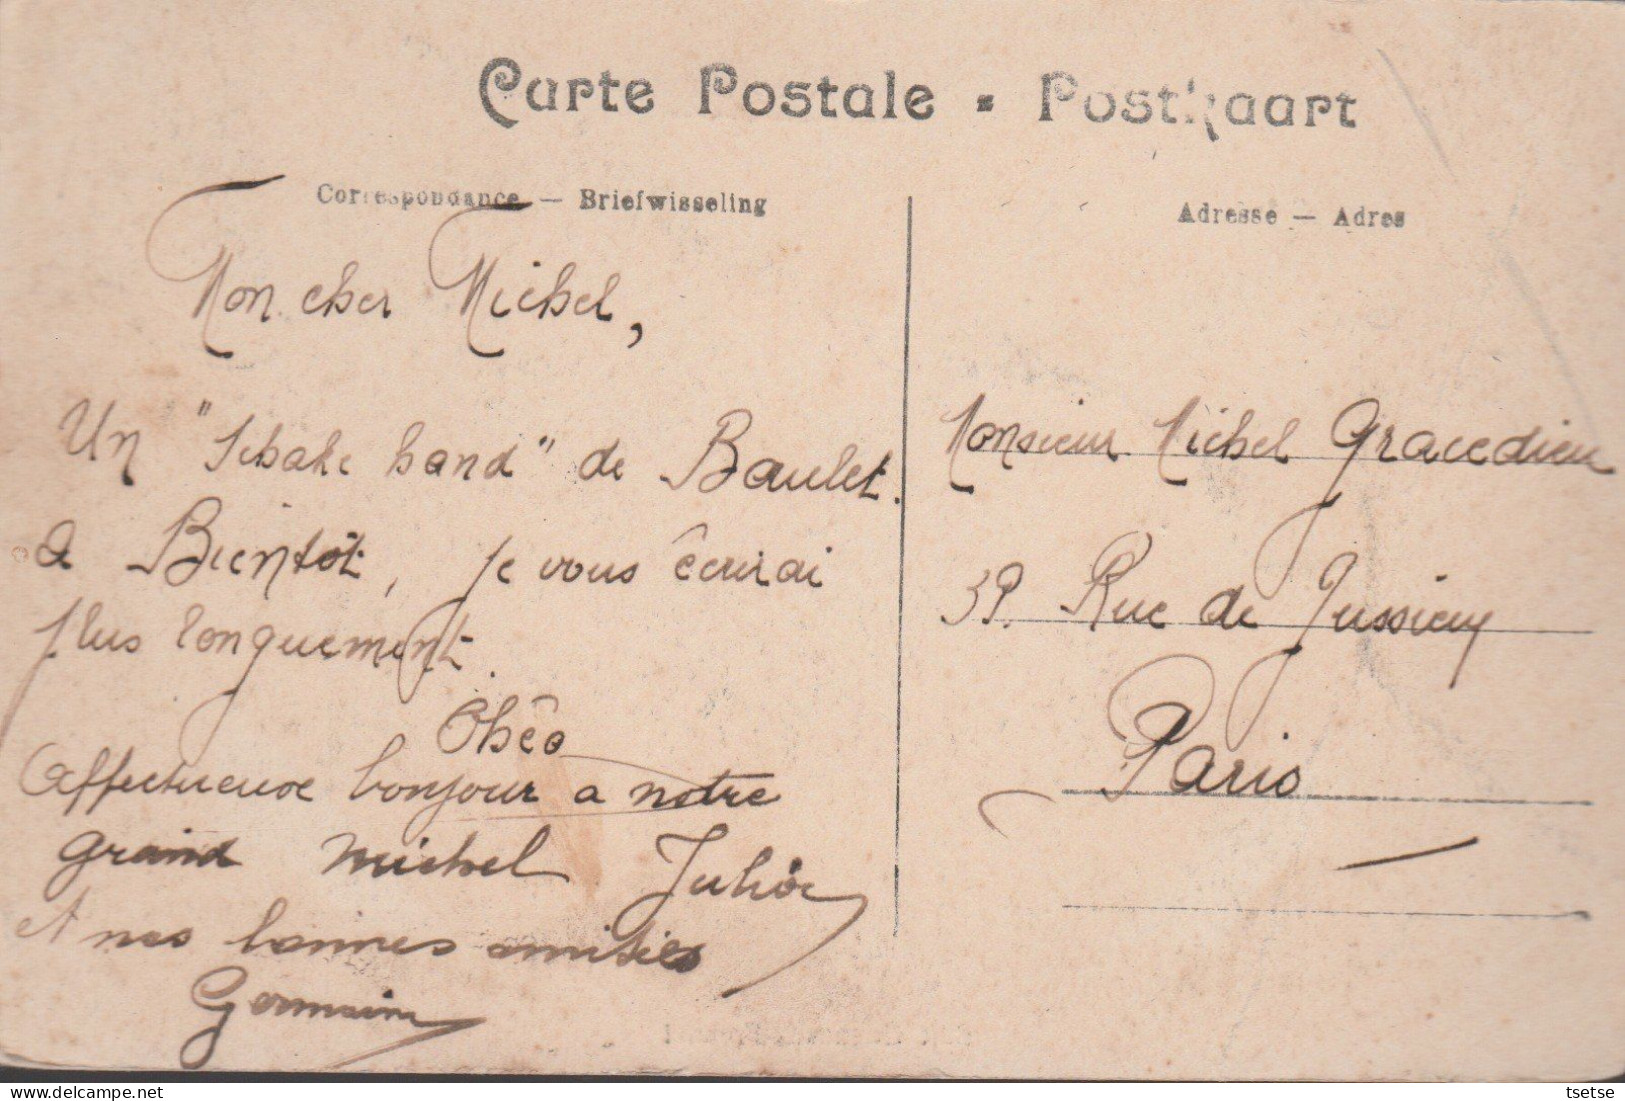 Carte Postale - Postkaart
Correspondance — Briefwisseling
Adresse — Adres
Mon cher Michel,
Un "Schake hand" de Baulet.
a Bientôt, je vous écrirai
plus longuement.
Théo
Affectueuse bonjour a notre
grand Michel
Et nos bonnes amitiés
Germain
Monsieur Michel Gracedieu
39. Rue de Jussieu
Paris
tsetse